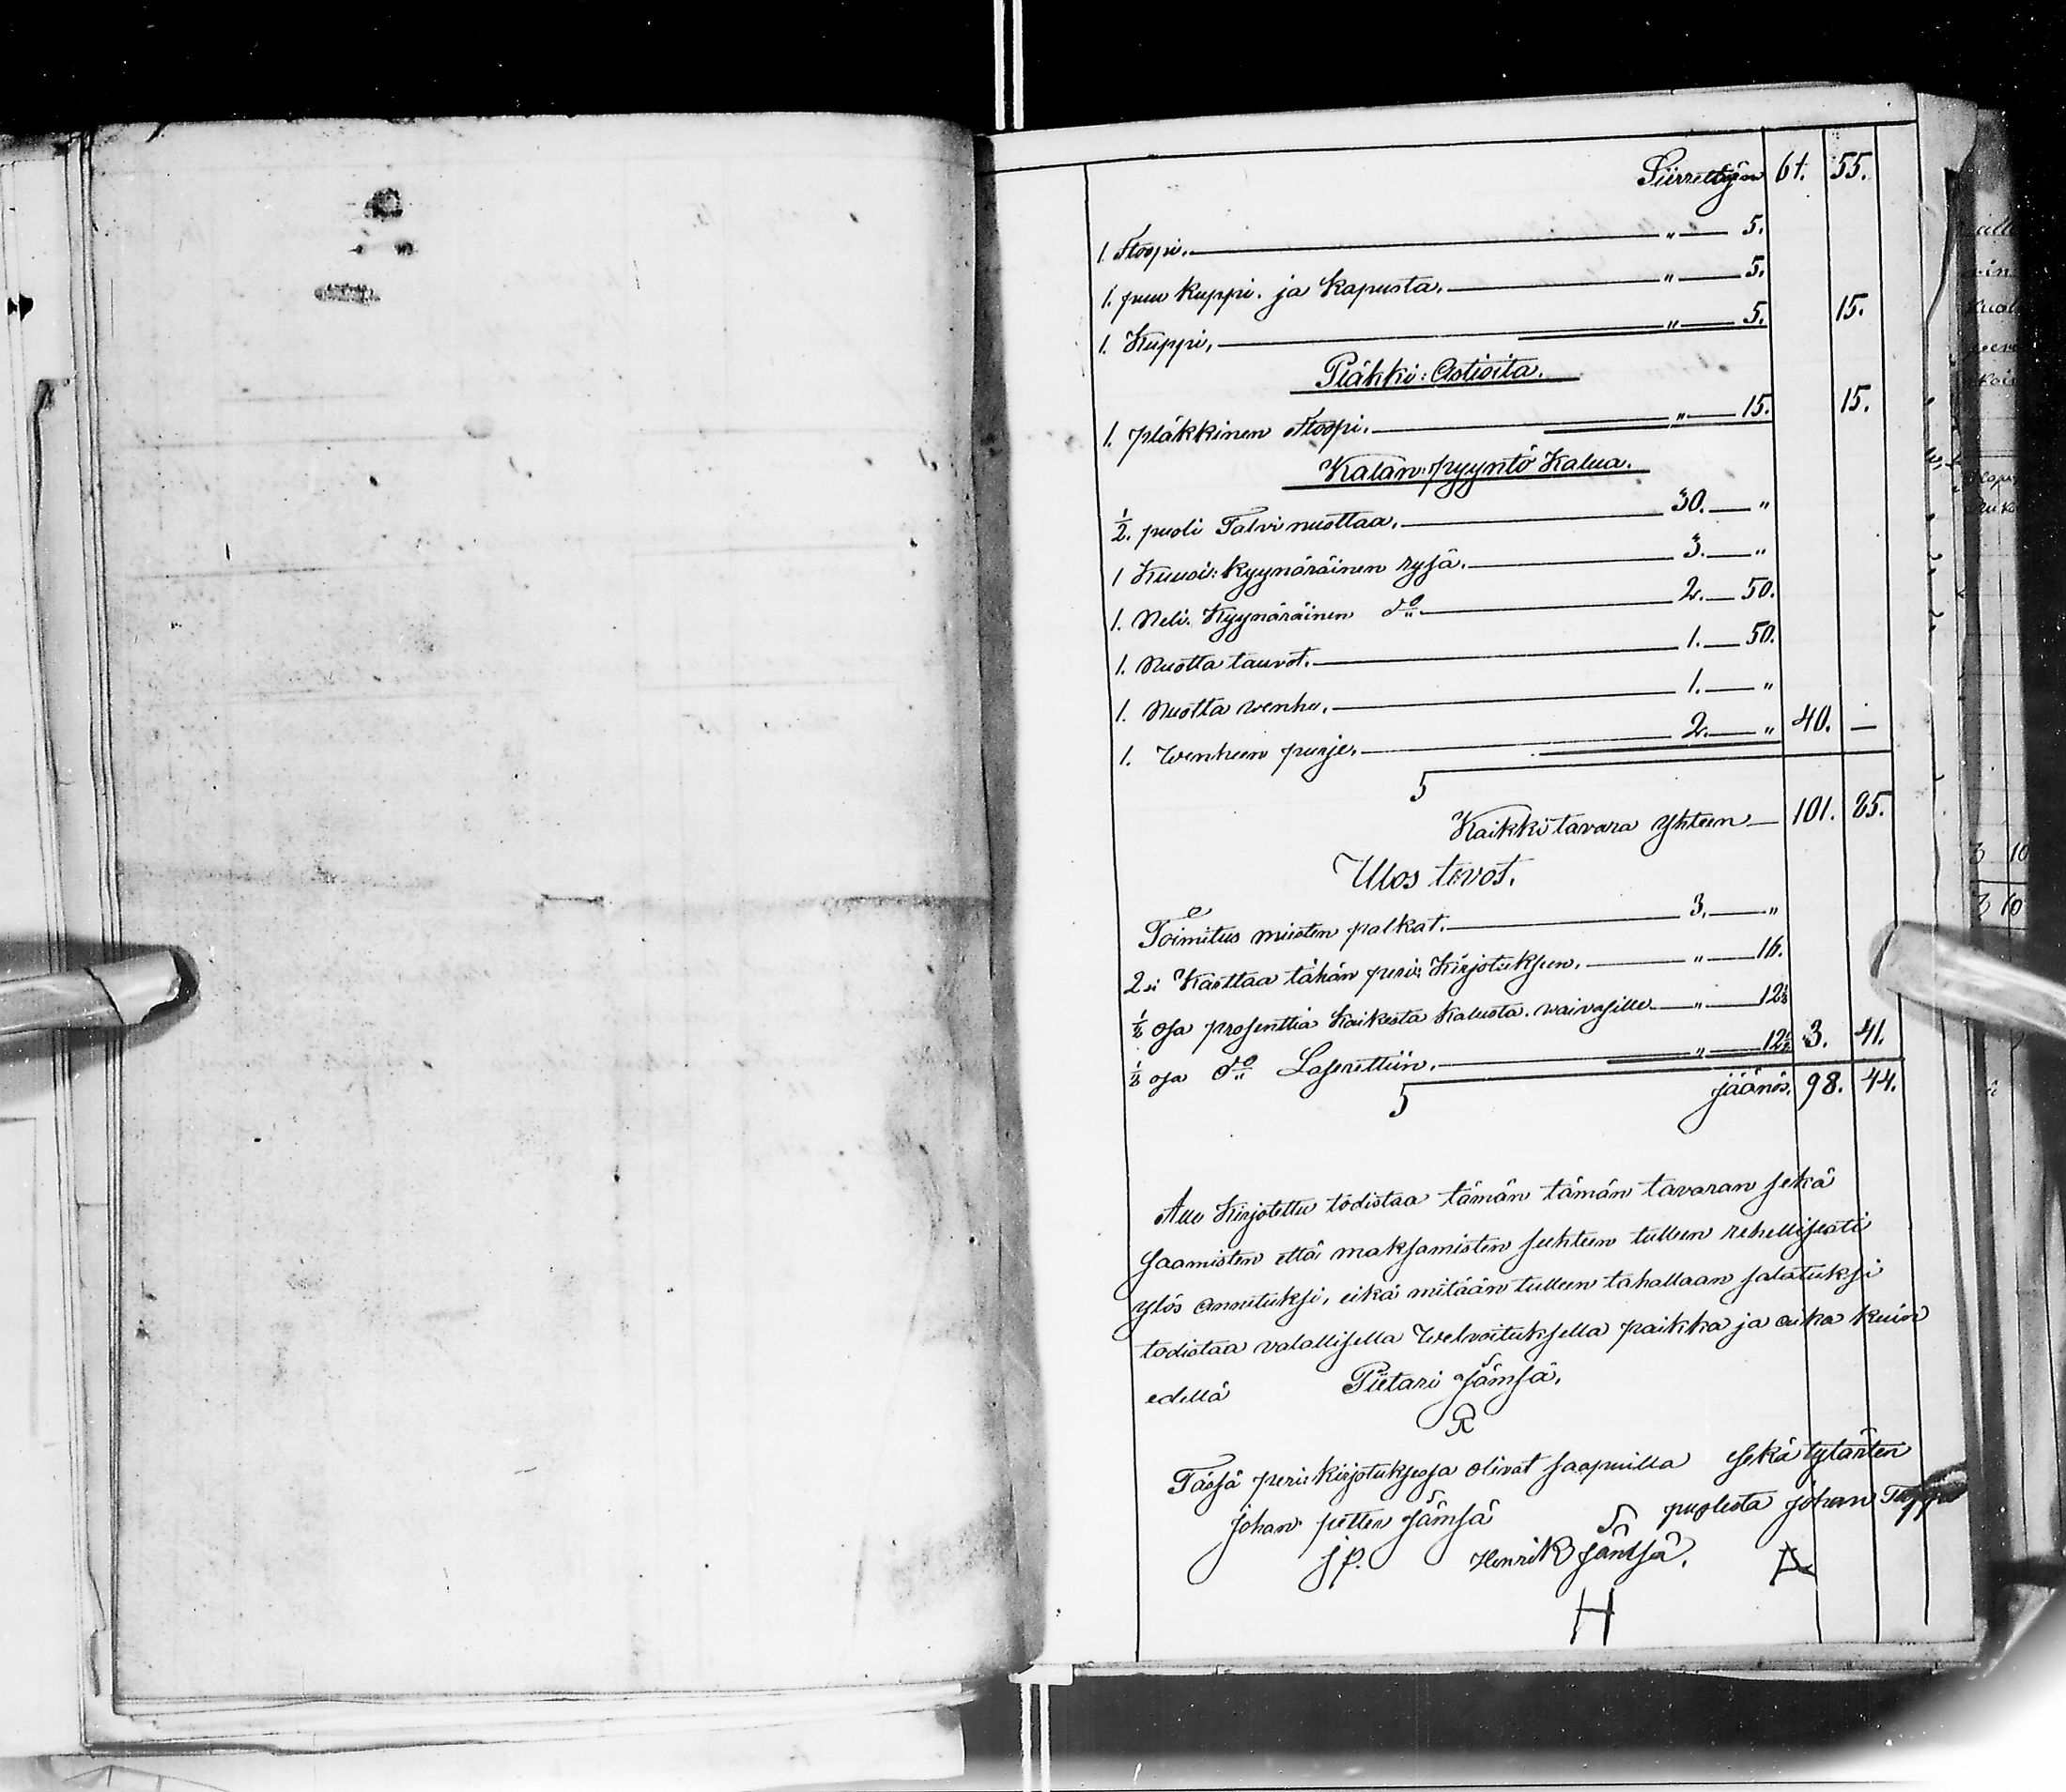 Siirrettyän 61. 55.
1. Stoopi. " 5.
1. puu kuppi. ja kapusta. " 5.
1. Kuppi. " 5. 15.
Pläkki: Astioita.
1. pläkkinen Stoopi. " 15. 15.
Kalan: pyyntö Kalua.
1/2. puoli Talvi nuottaa. 30. "
1 Kuusi: kyynäräinen rysä. 3. "
1. Neli. Kyynäräinen do 2. 50.
1. Nuotta tauvot. 1. 50.
1. Nuotta wenhe. 1. "
1. Wenheen purje. 2. " 40. —
Kaikki tavara yhteen 101. 85.
Ulos tevot.
Toimitus miesten palkat. 3. "
2si Karttaa tähän peri: Kirjotukseen. " 16.
1/8 osa prosenttia kaikesta kalusta. waivasille " 12 1/2
1/8 osa do Lasarettiin. " 12 1/2 3. 41.
jäänös. 98. 44.
Alle Kirjotettu todistaa tämän tämän tavaran sekä
saamisten että maksamisten suhteen tulleen rehellisesti
ylös annetuksi, eikä mitään tulleen tahallaan salatuksi
todistaa valallisella Welvoituksella paikka ja aika kuin
edellä Pietari Jämsä.
Tässä peri: kirjotuksessa olivat saapuilla sekä tytärten
Johan petter Jämsä puolesta Johan
J P. Henrik Jämsä. A
H